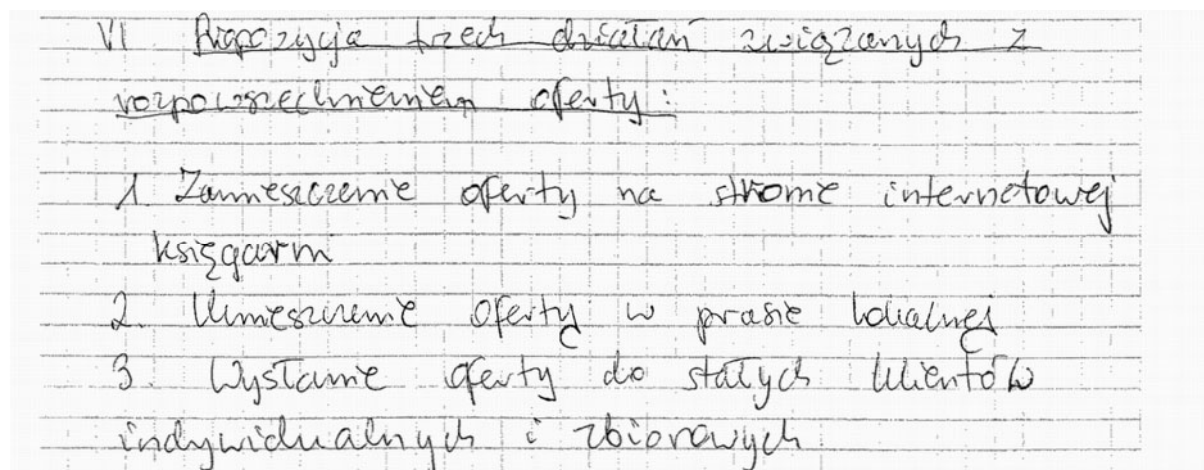 VI Propozycja trzech działań związanych z
rozpowszechnieniem oferty:
1. Zamieszczenie oferty na stronie internetowej
księgarni
2. Umieszczenie oferty w prasie lokalnej
3. Wysłanie oferty do stałych klientów
indywidualnych i zbiorowych